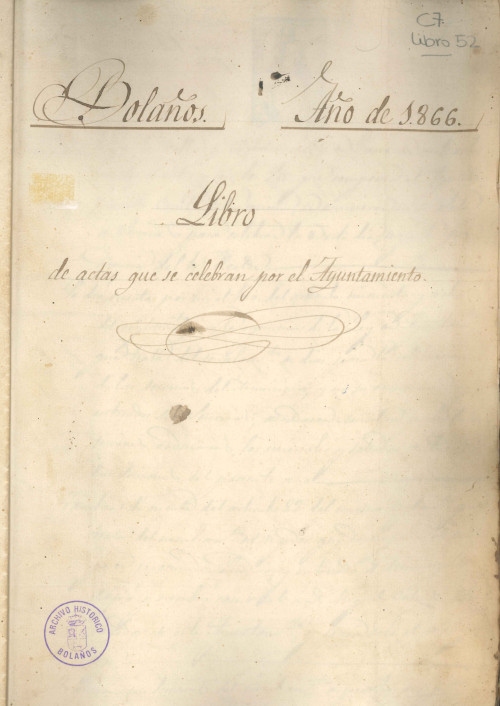 C7
Libro 52
Bolaños. Año de 1.866.
Libro
de actas que se celebran por el Ayuntamiento.
ARCHIVO HISTORICO
BOLAÑOS